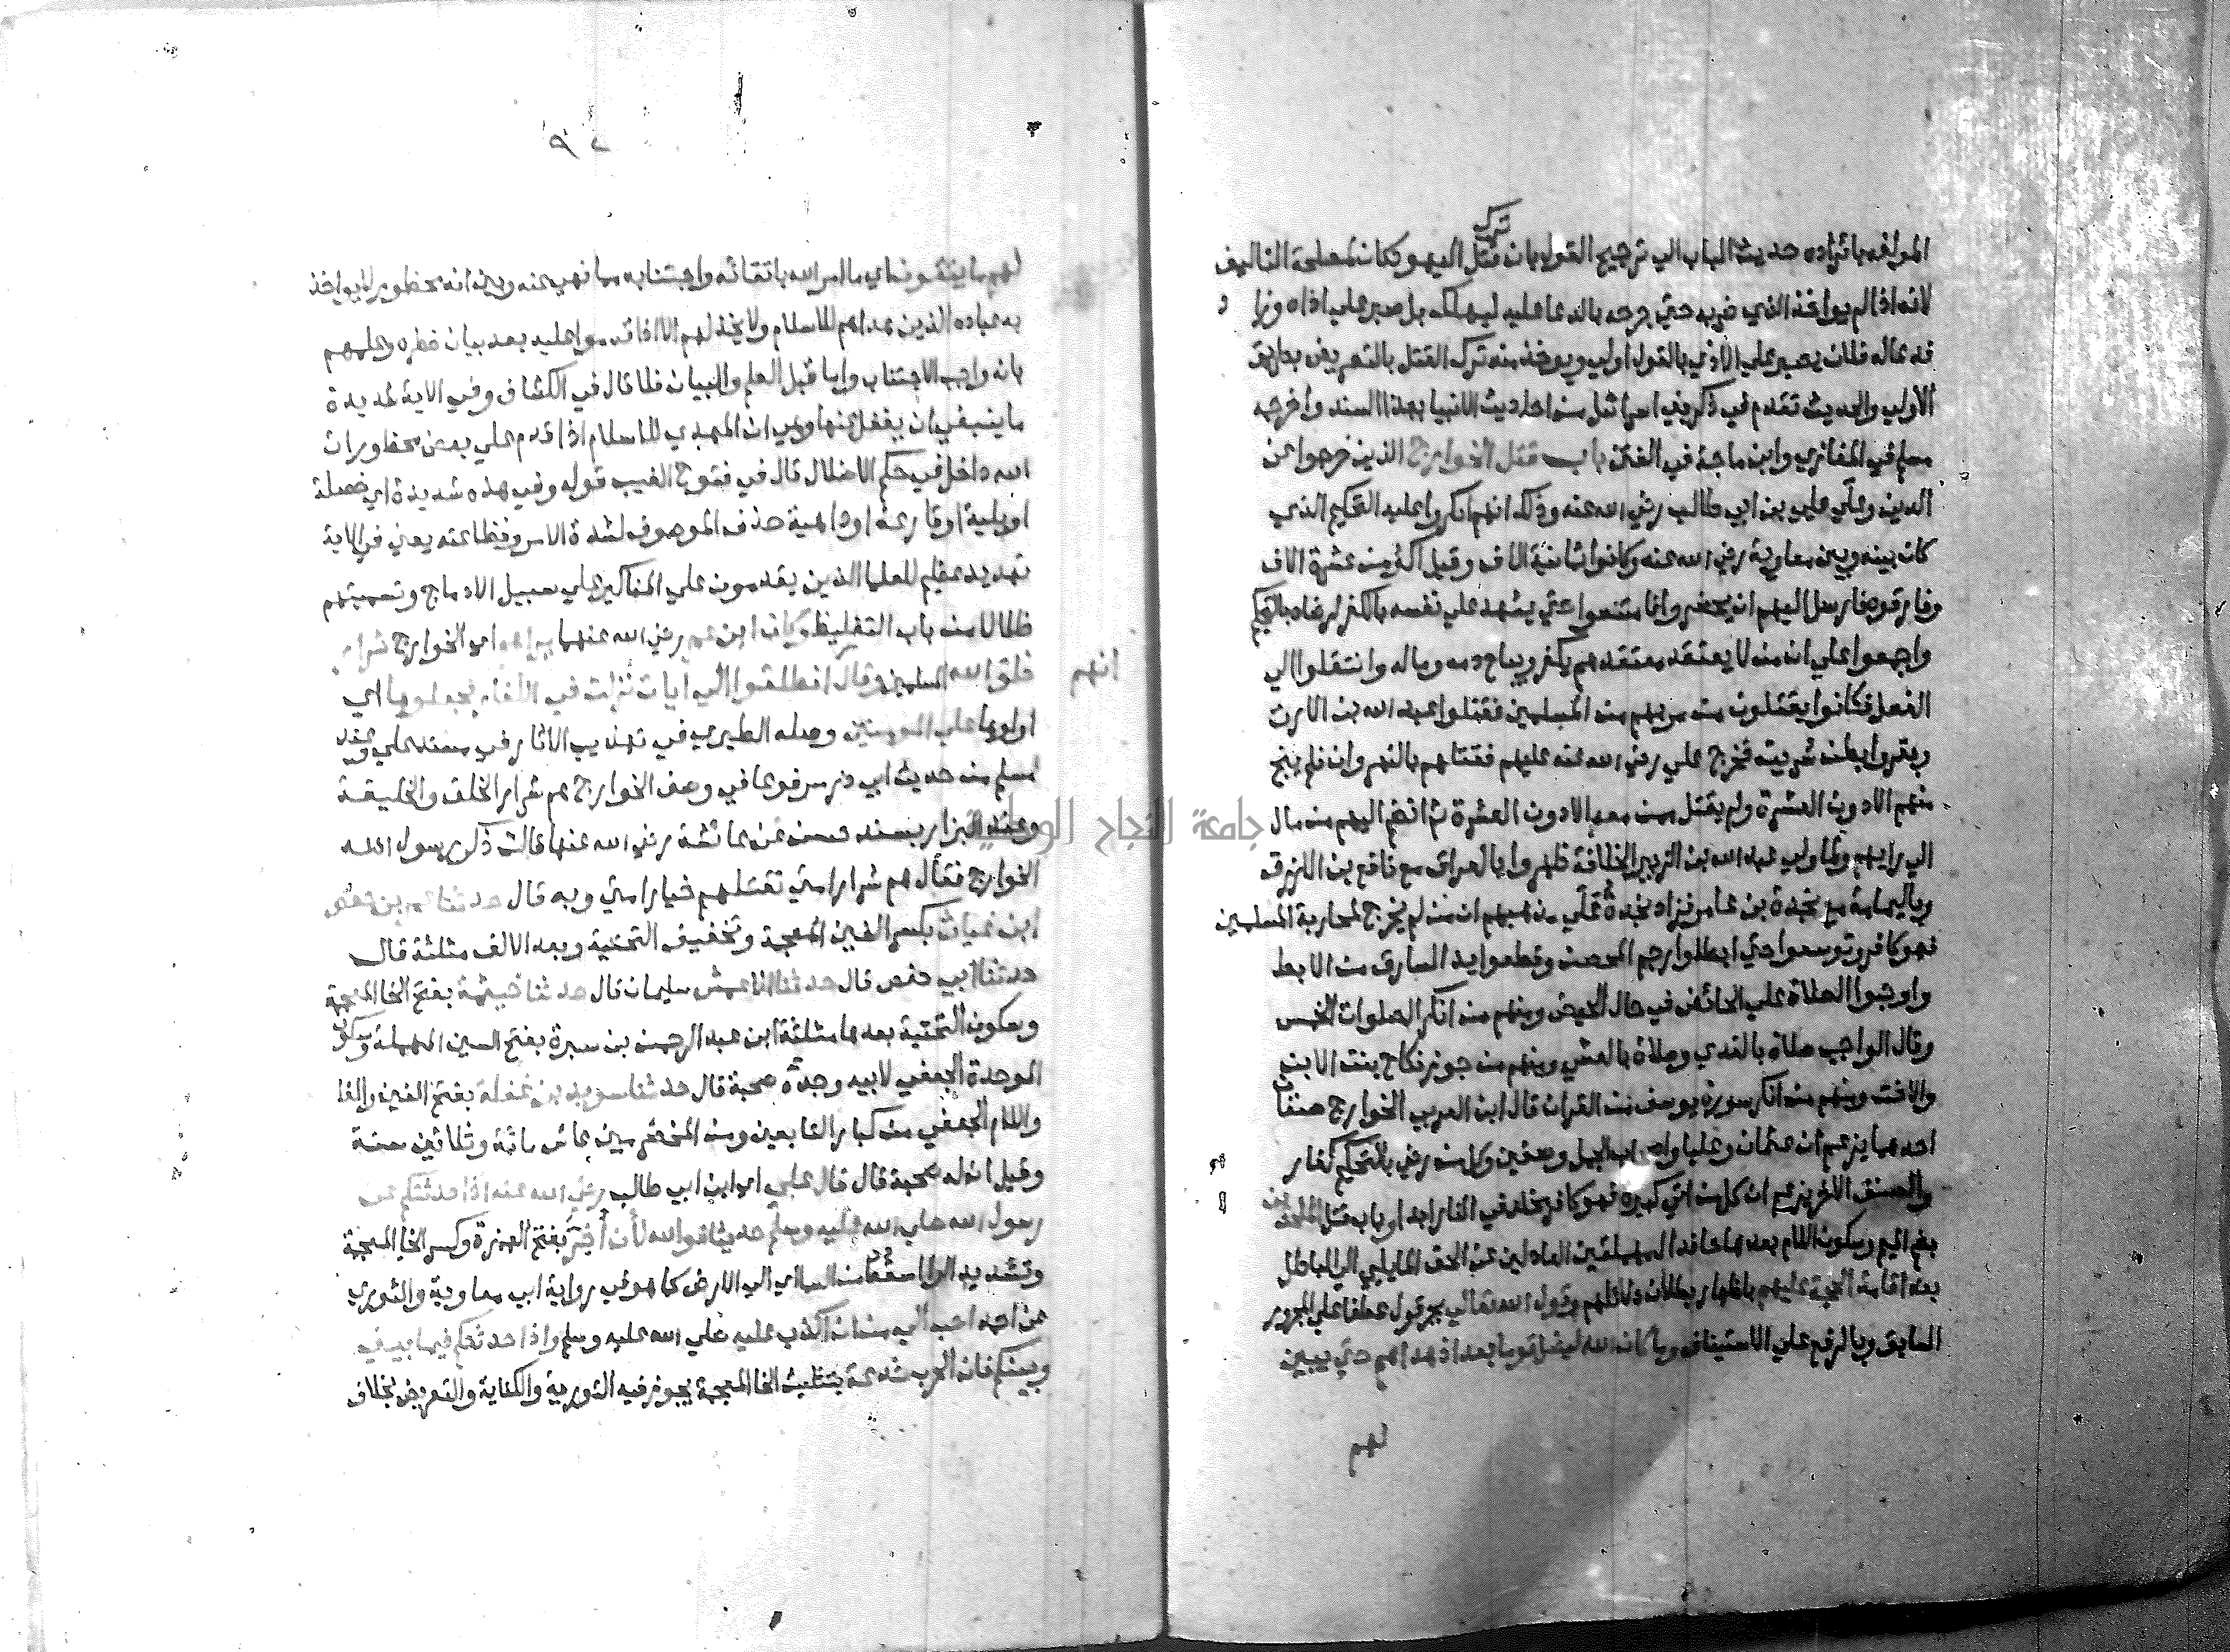 ترك
المؤلف بايراده حديث الباب الي ترجيح القول بان قتل اليهود كان لمصلحة التاليف
لانه اذا لم يواخذ الذي ضربه حتي جرحه بالدعا عليه ليهلك بل صبر علي اذاه وزا د
فدعا له فلان يصبر علي الاذي بالقول اولي ويوخذ منه ترك القتل بالتعريض بطريق
الأولي والحديث تقدم في ذكر بني اسرائيل من احاديث الانبيا بهذا السند واخرجه
مسلم في المغازي وابن ماجة في الفتن باب قتل الخوارج الذين خرجوا عن
الدين وعلي علي بن ابي طالب رضي الله عنه وذلك انهم انكروا عليه التحكيم الذي
كان بينه وبين معاوية رضي الله عنه وكانوا ثمانية الاف وقيل اكثر من عشرة الاف
وفارقوه فارسل اليهم ان يحضروا فامتنعوا حتي يشهد علي نفسه بالكفر لرضاه بالتحكيم
واجمعوا علي ان من لا يعتقد معتقدهم يكفر ويباح دمه وماله وانتقلوا الي
الفعل فكانوا يقتلون من مر بهم من المسلمين فقتلوا عبد الله بن الارت
وبقروا بطن سريته فخرج علي رضي الله عنه عليهم فقتلهم بالنهروان فلم ينج
منهم الا دون العشرة ولم يقتل ممن معه الا دون العشرة ثم انضم اليهم من مال
الي رايهم ولما ولي عبد الله بن الزبير الخلافة ظهروا بالعراق مع نافع بن الازرق
وباليمامة مع نجدة بن عامر فزاد نجدة علي مذهبهم ان من لم يخرج لمحاربة المسلمين
فهو كافر وتوسعوا حتي ابطلوا رجم المحصن وقطعوا يد السارق من الابط
واوجبوا الصلاة علي الحائض في حال الحيض ومنهم من انكر الصلوات الخمس
وقال الواجب صلاة بالغدي وصلاة بالعشي ومنهم من جوز نكاح بنت الابن
والاخت ومنهم من انكر سورة يوسف من القران قال ابن العربي الخوارج صنفان
احدهما يزعم ان عثمان وعليا واصحاب الجمل وصفين وكل من رضي بالتحكيم كفار
والصنف الاخر يزعم ان كل من اتي كبيرة فهو كافر يخلد في النار ابدا وباب قتل الملحدين
بضم الميم وسكون اللام بعدها حا فدال مهملتين العادلين عن الحق المايلين الي الباطل
بعد اقامة الحجة عليهم باظهار بطلان دلائلهم وقول الله تعالي بجر قول عطفا علي المجرور
السابق وبالرفع علي الاستيناف وما كان الله ليضل قوما بعد اذ هداهم حتي يبين
لهم
٩٢
لهم ما يتقون اي ما امر الله باتقائه واجتنابه مما نهي عنه وبين انه محظور لا يواخذ
به عباده الذين هداهم للاسلام ولا يخذلهم الا اذا قدموا عليه بعد بيان خطره وعلمهم
بانه واجب الاجتناب واما قبل العلم والبيان فلا قال في الكشاف وفي الاية شديدة
ما ينبغي ان يغفل عنها وهي ان المهدي للاسلام اذا قدم علي بعض محظورات
الله داخل في حكم الاضلال قال في فتوح الغيب قوله وفي هذه شديدة اي خصلة
او بلية او قارعة او داهية حذف الموصوف لشدة الامر وفظاعته يعني في الاية
تهديد عظيم للعلما الذين يقدمون علي المناكير علي سبيل الادماج وتسميتهم
ضلالا من باب التغليظ وكان ابن عمر رضي الله عنهما يراهم اي الخوارج شرار
خلق الله المسلمين وقال انهم انطلقوا الي ايات نزلت في الكفار فجعلوها اي
اولوها علي المومنين وصله الطبري في تهذيب الاثار في مسند علي وعند
مسلم من حديث ابي ذر مرفوعا في وصف الخوارج هم شرار الخلق والخليقة
وعند البزار بسند حسن عن عائشة رضي الله عنها قالت ذكر رسول الله
الخوارج فقال هم شرار امتي تقتلهم خيار امتي وبه قال حدثنا عمر بن حفص
ابن غياث بكسر الغين المعجمة وتخفيف التحتية وبعد الالف مثلثة قال
حدثنا ابي حفص قال حدثنا الاعمش سليمان قال حدثنا خيثمة بفتح الخا المعجمة
وسكون التحتية بعدها مثلثة ابن عبد الرحمن بن سبرة بفتح السين المهملة وسكون
الموحدة الجعفي لابيه وجده صحبة قال حدثنا سويد بن غفلة بفتح الغين والفا
واللام الجعفي من كبار التابعين ومن المخضرمين عاش مائة وثلاثين سنة
وقيل ان له صحبة قال قال علي اي ابن ابي طالب رضي الله عنه اذا حدثتكم عن
رسول الله صلي الله عليه وسلم حديثا فوالله لأن أخِرَّ بفتح الهمزة وكسر الخا المعجمة
وتشديد الرا اسقط من السما اي الي الارض كما هو في رواية ابي معاوية والثوري
عن احمد احب الي من ان اكذب عليه صلي الله عليه وسلم واذا حدثتكم فيما بيني
وبينكم فان الحرب خدعة بتثليث الخا المعجمة يجوز فيه التورية والكناية والتعريض بخلاف
انهم
جامعة النجاح الوطنية